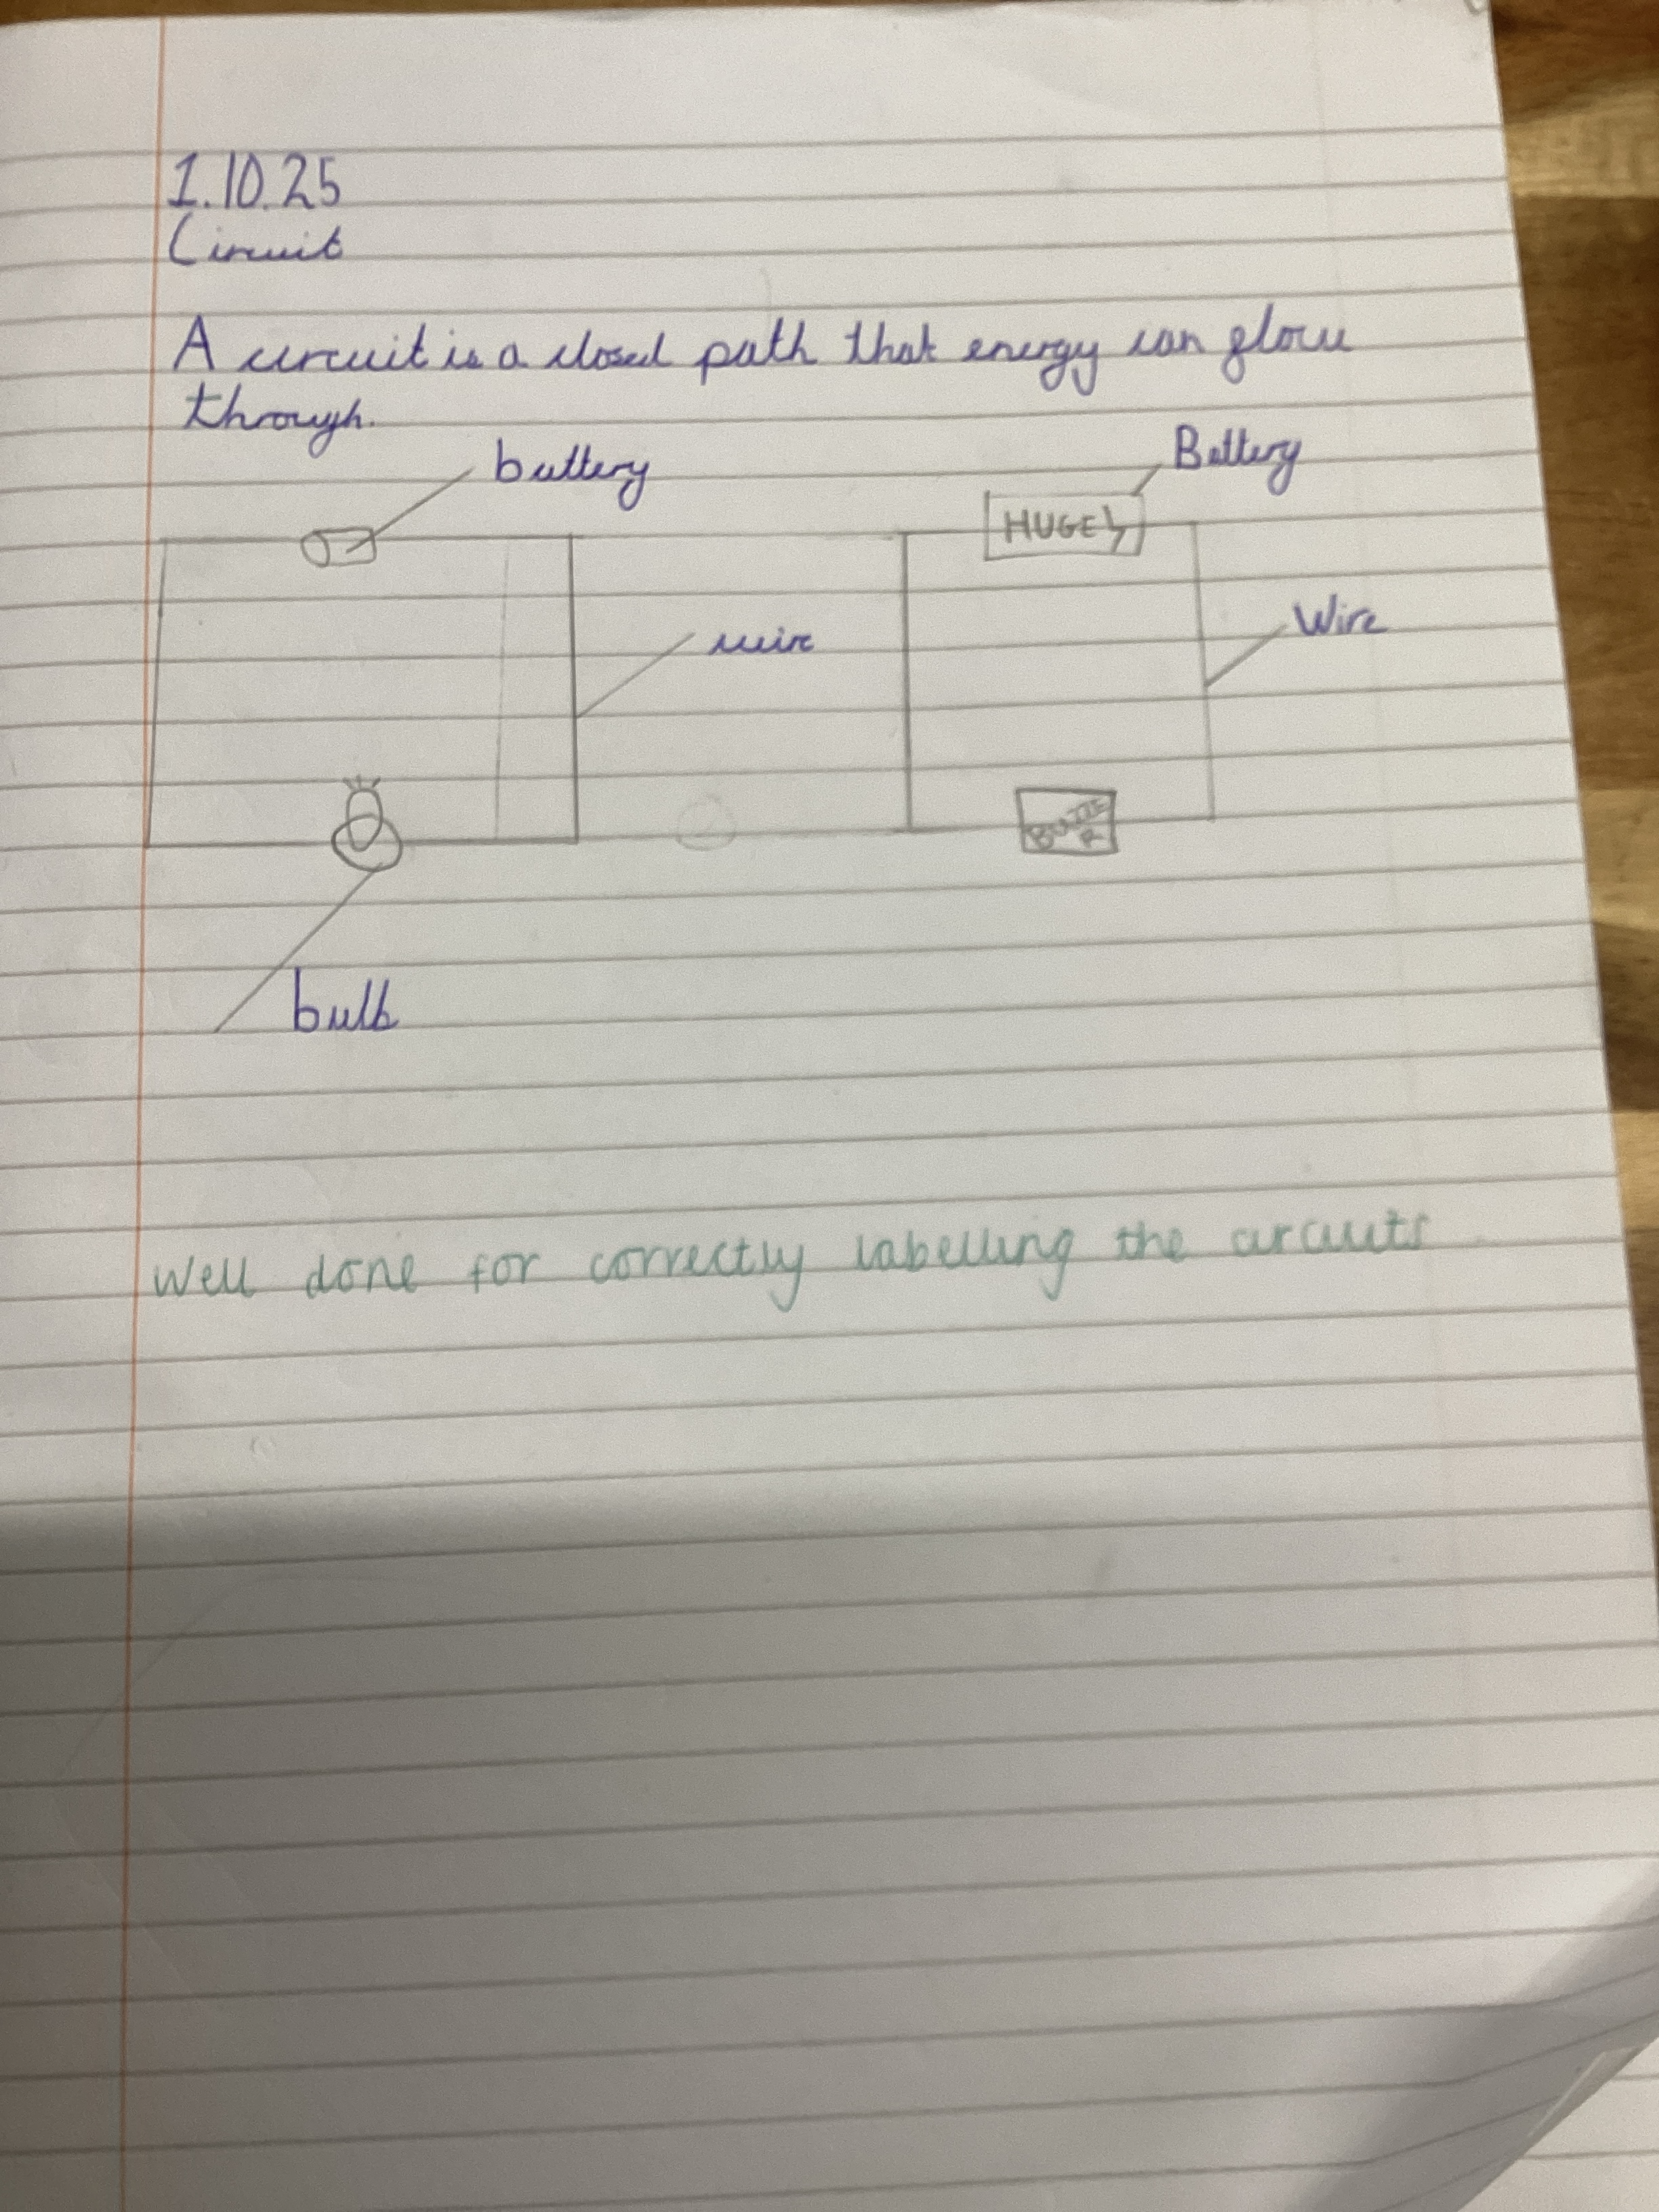 1.10.25
Circuit
A circuit is a closed path that energy can flow
through.
battery
Battery
HUGE
wire
Wire
BUZZE
R
bulb
Well done for correctly labelling the circuits